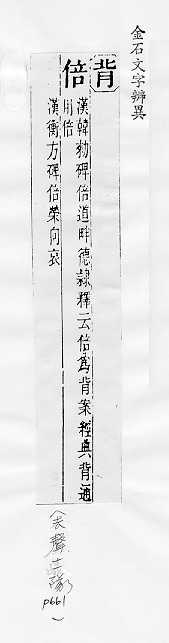 金石文字辨異
背
倍
漢韓勑碑倍道畔德隸釋云倍爲背案經典背通
用倍
漢衡方碑倍榮向哀
p661